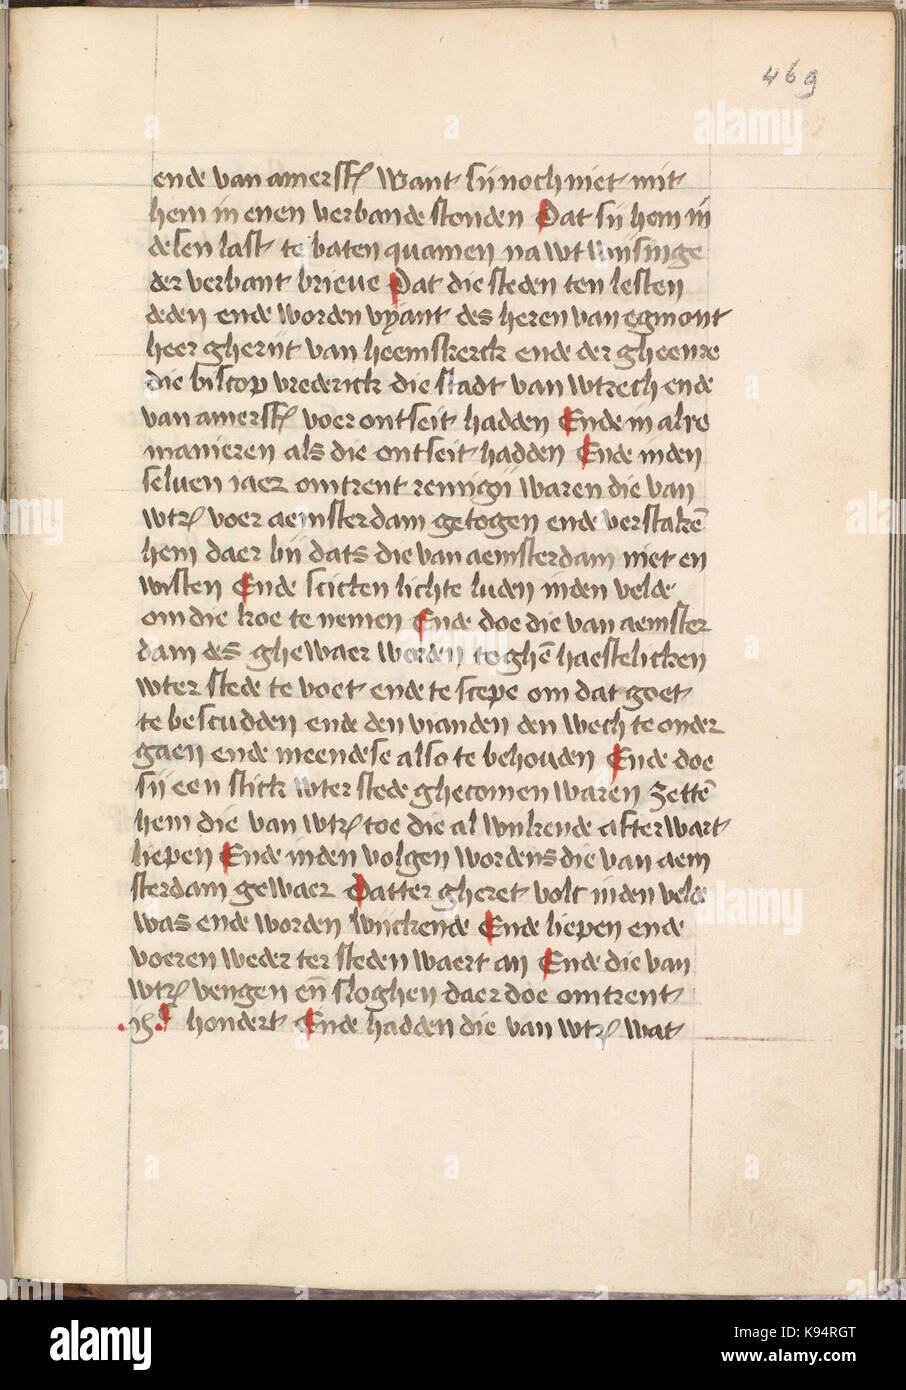 469
ende van amersf. Want sij noch niet mit
hem in enen verbande stonden Dat sij hem in
desen last te baten quamen na wtwisinge
der verbant brieue Dat die steden ten lesten
deden ende worden vyant des heren van egmont
heer gherijt van heemskerck ende der gheenre
die biscop vrederick die stadt van wtrech ende
van amersf. voer ontseit hadden Ende in alre
manieren als die ontseit hadden Ende inden
seluen iaer omtrent remigij waren die van
wtr. voer aemsterdam getogen ende verstakē
hem daer bij dats die van aemsterdam niet en
wisten Ende scicten lichte luden inden velde
om die koe te nemen Ende doe die van aemster
dam des ghewaer worden toghē haestelicken
wter stede te voet ende te scepe om dat goet
te bescudden ende den vianden den wech te onder
gaen ende meendese also te behouden Ende doe
sij een stick wter stede ghecomen waren zettē
hem die van wtr. toe die al wijkende afterwart
liepen Ende inden volgen wordens die van aem
sterdam gewaer Datter gheret volc inden velde
was ende worden wijckende Ende liepen ende
voeren weder ter steden waert an Ende die van
wtr. vengen en̄ sloghen daer doe omtrent
hondert Ende hadden die van wtr. wat
alamy
Image ID: K94RGT
www.alamy.com